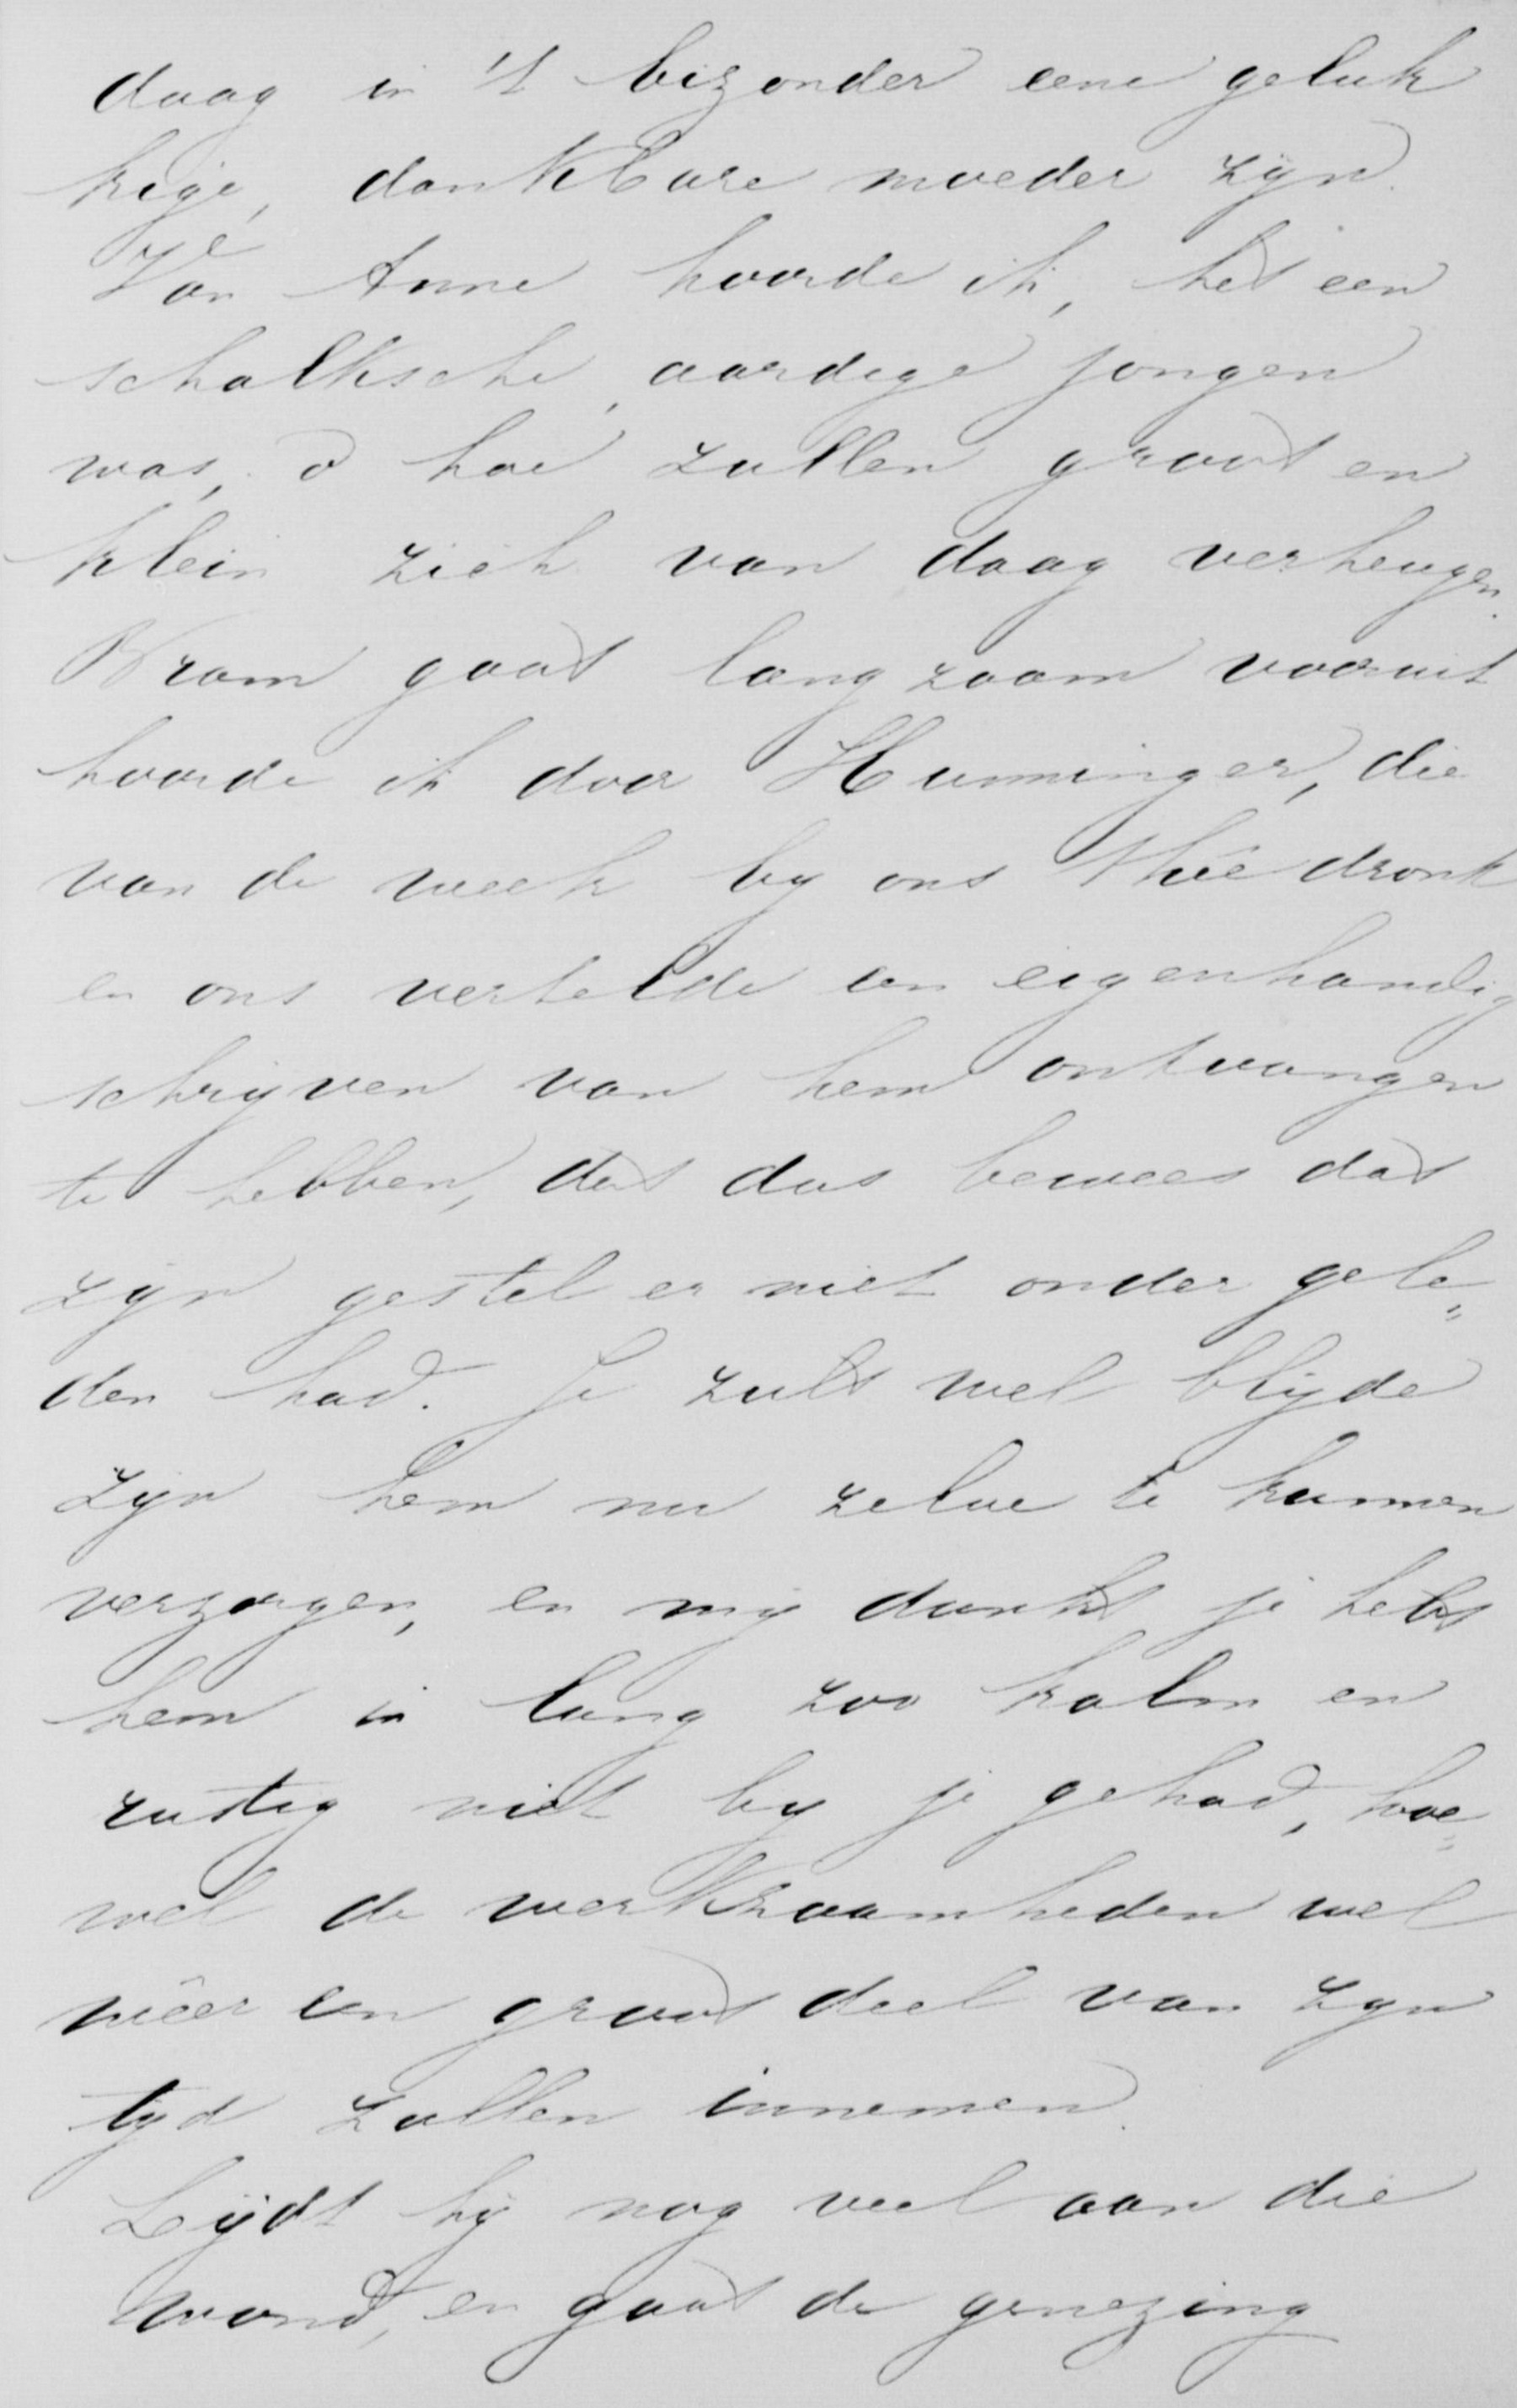 daag in 't bizonder eene geluk
kige, dankbare moeder zijn.
Van Anne hoorde ik, het een
schalksche, aardige jongen
was, o hoe zullen groot en
klein zich van daag verheugen.
Bram gaat langzaam vooruit
hoorde ik door Hunninger, die
van de week by ons thee dronk
en ons vertelde een eigenhandig
schrijven van hem ontvangen
te hebben, dat dus bewees dat
zijn gestel er niet onder gele„
den had. Je zult wel blijde
zijn hem nu zelve te kunnen
verzorgen, en mij dunkt je hebt
hem in lang zoo kalm en
rustig niet by je gehad, hoe„
wel de werkzaamheden wel
wêer een groot deel van zyn
tyd zullen innemen.
Lijdt hij nog veel aan die
wond, en gaat de genezing